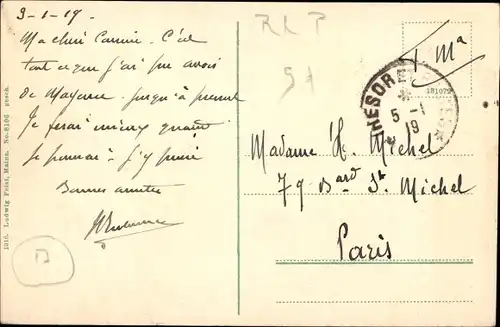 3-1-19.
Ma chère Carmen. C'est
tout ce que j'ai pu avoir
de Mayence jusqu'à présent
Je ferai mieux quand
je pourrai. J'y joins
Bonnes années
R L P
TRESOR ET
5 - 1
19
181079
Madame H. Michel
79 Bard St. Michel
Paris
1916. Ludwig Feist, Mainz. No. 8106 gesch.
B